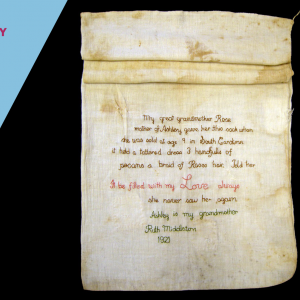 Y
My great grandmother Rose
mother of Ashley gave her this sack when
she was sold at age 9 in South Carolina
it held a tattered dress 3 handfulls of
pecans a braid of Roses hair. Told her
It be filled with my Love always
she never saw her again
Ashley is my grandmother
Ruth Middleton
1921